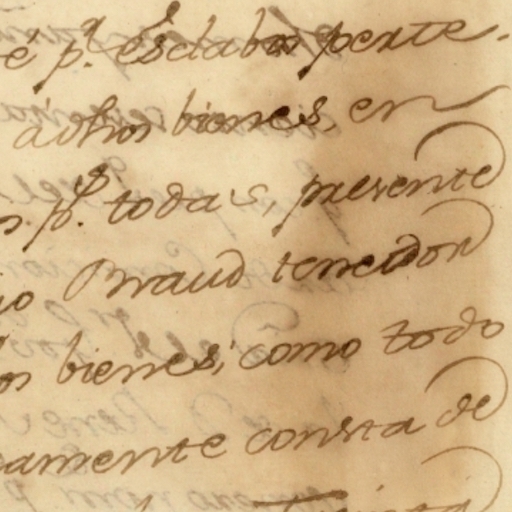 é p.ª esclabos perte-
á dhos bienes, en
p.ª todas, presente
io Braud tenedor
os bienes, como todo
amente consta de